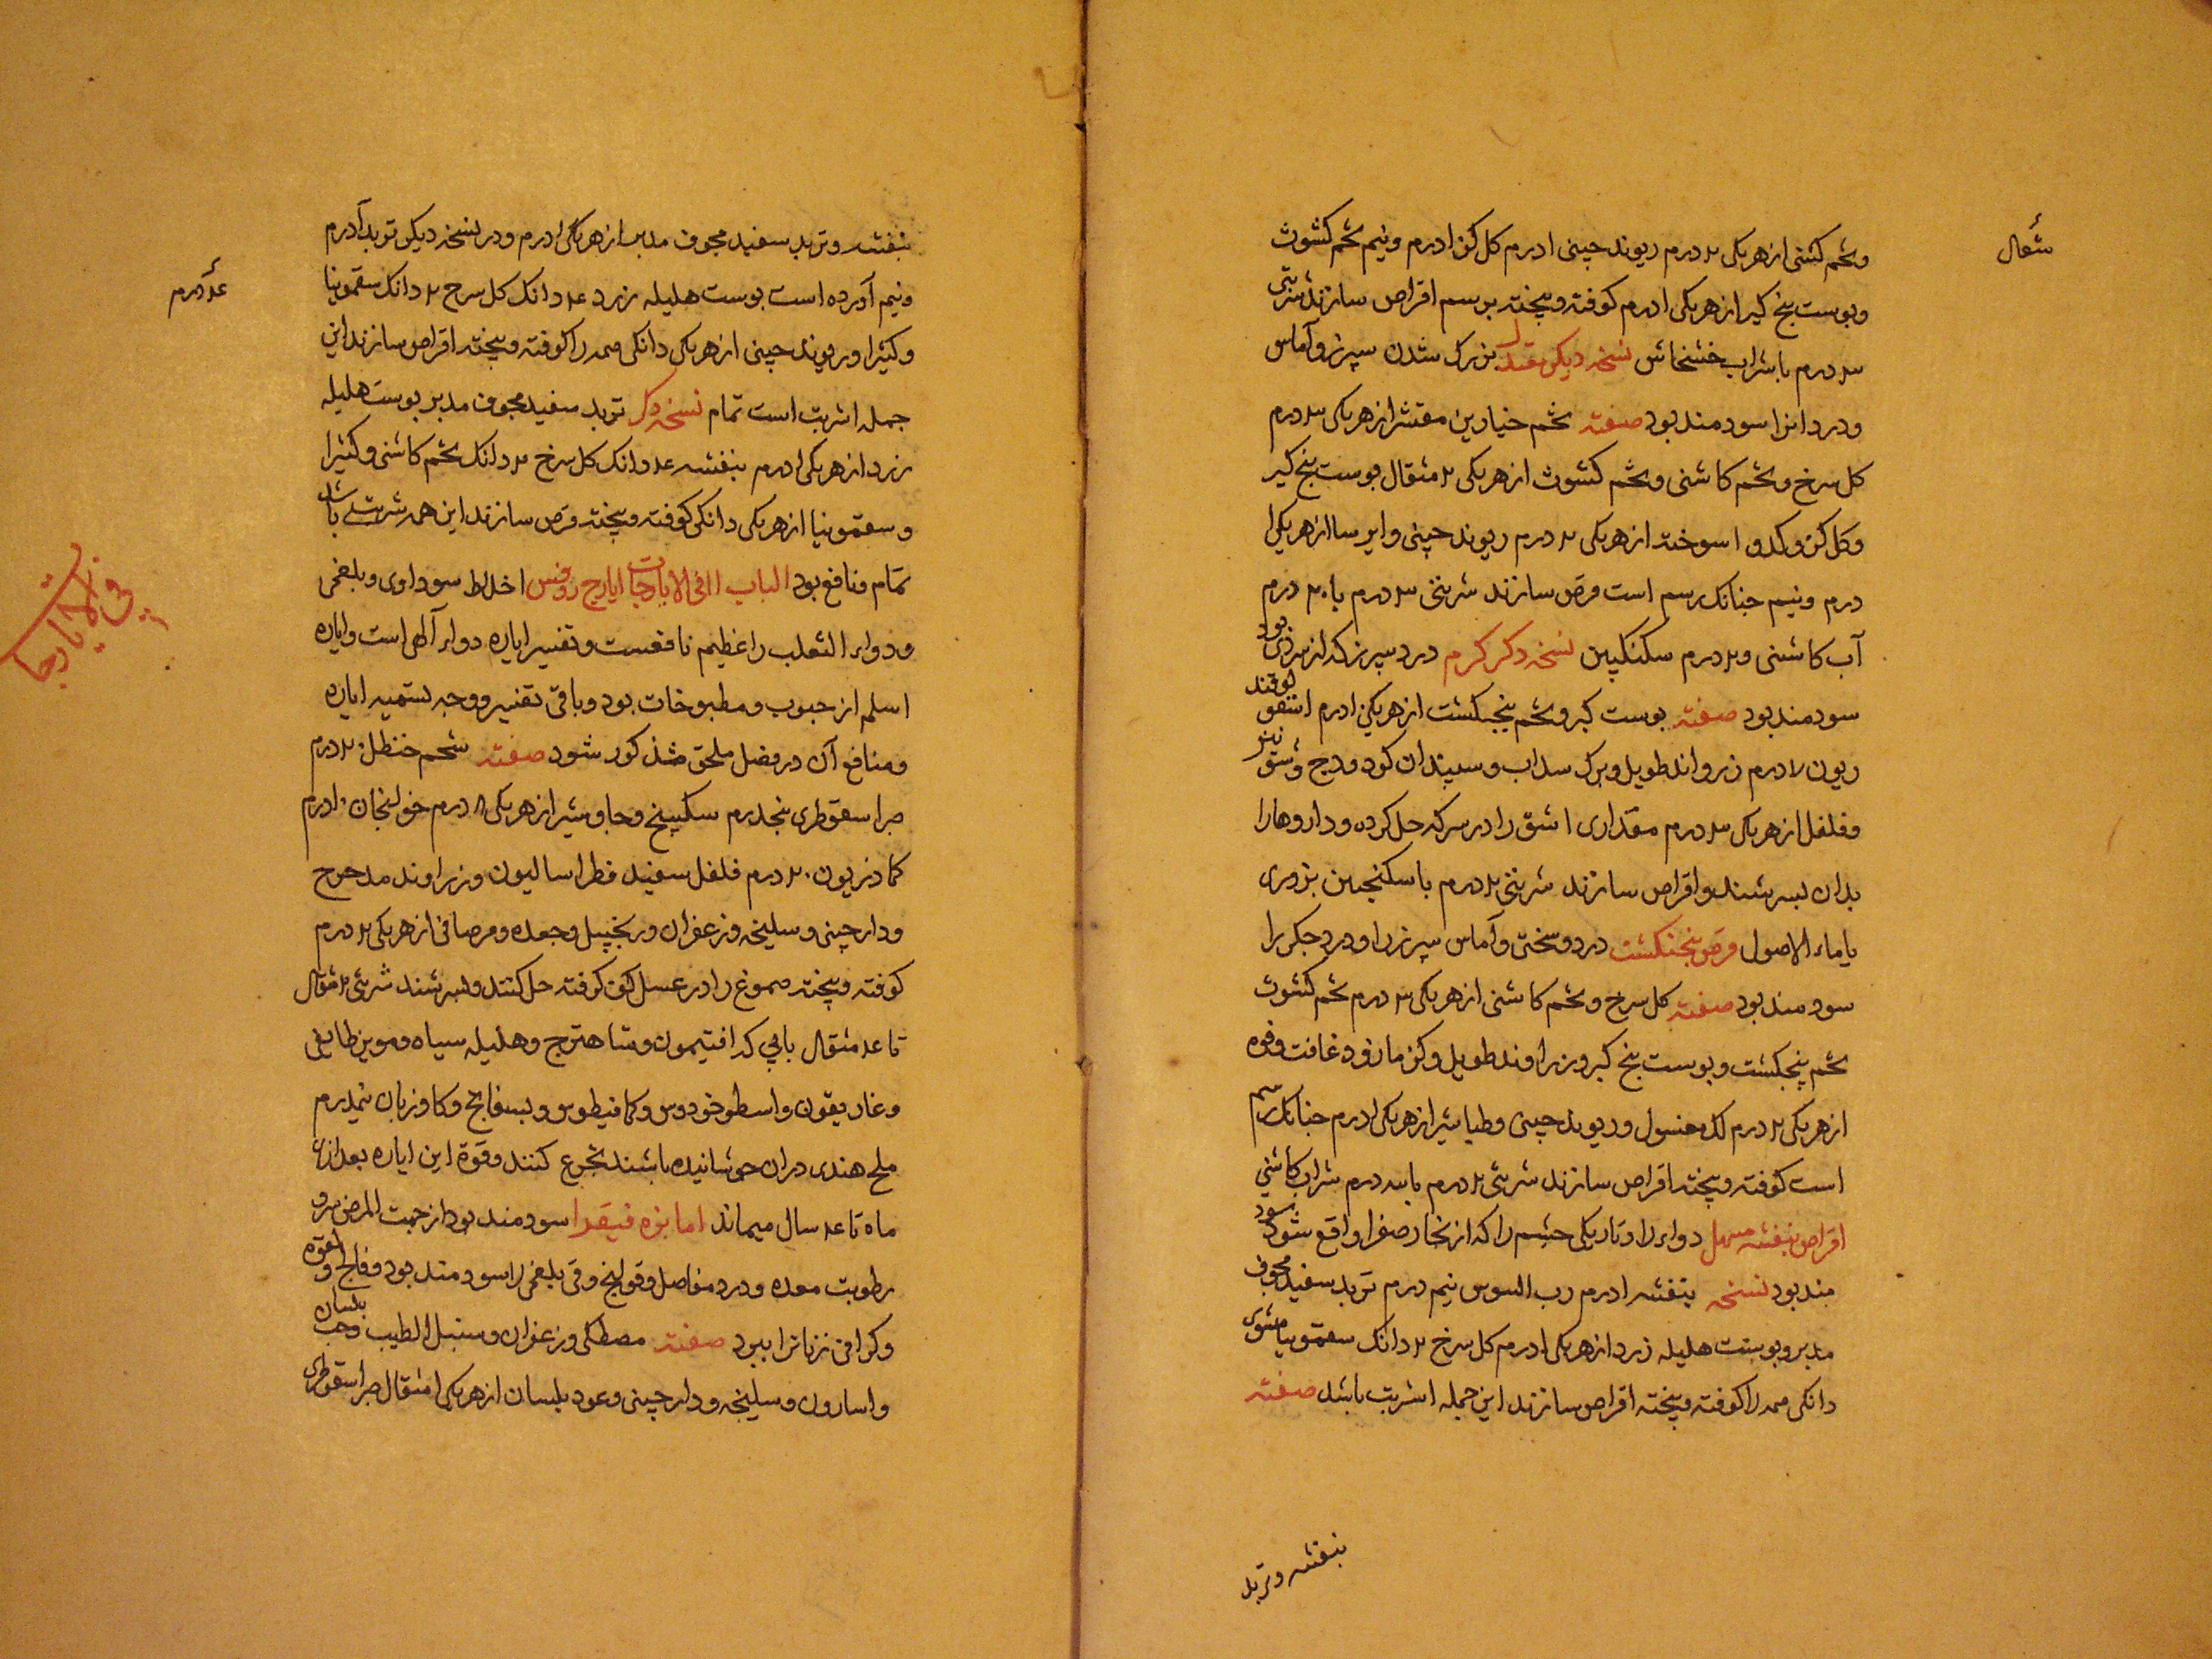 وتخم کشنی ازهریکی ۲ درم ریوند چینی ا درم کل کز ا درم ونیم تخم کشوث
مثقال
وپوست بیخ کبر ازهریکی ا درم کوفته وبیخته برسم اقراص سازند شربتی
۳ درم باشراب خشخاش نسخه دیکر بزرک شدن سپرز وآماس
ودرد انرا سودمند بود صفته تخم خیارین مقشر ازهریکی ۳ درم
کل سرخ وتخم کاشنی وتخم کشوث ازهریکی ۲ مثقال پوست بیخ کبر
وکل کز وکدو اسوخته ازهریکی ۲ درم ریوند چینی وایرسا ازهریکی ا
درم ونیم چنانک رسم است قرص سازند شربتی ۳ درم با ۲۰ درم
آب کاشنی و۲ درم سکنکبین نسخه دکر کرم درد سپرز که از سردی بود
سودمند بود صفته پوست کبر وتخم پنجنکشت ازهریکی ا درم
درم زرواند طویل وبرک سداب وسپندان کود ووج
وفلفل ازهریکی ۳ درم مقداری اشق را در سرکه حل کرده وداروها را
بدان بسرشند واقراص سازند شربتی ۲ درم باسکنجبین بزوری
یاماء الاصول قرص پنجنکشت درد وسختی وآماس سپرز را ودرد جکر را
سودمند بود صفته کل سرخ وتخم کاشنی ازهریکی ۳ درم تخم کشوث
تخم پنجنکشت وپوست بیخ کبر وزراوند طویل وکزمازو وغافت وفوه
ازهریکی ۲ درم لک مغسول وریوند چینی وطباشیر ازهریکی ا درم چنانک رسم
است کوفته وبیخته اقراص سازند شربتی ۲ درم باسه درم شراب کاشنی
اقراص بنفشه مسهل دوار را وتاریکی چشم را که از بخار صفرا واقع شود سود
مند بود نسخه بنفشه ا درم رب السوس نیم درم تربد سفید مجوف
مدبر وپوست هلیله زرد ازهریکی ا درم کل سرخ ۲ دانک سقمونیا مشوی
دانکی همه را کوفته وبیخته اقراص سازند این جمله اشربت باشد صفته
بنفشه وتربد
بنفشه وتربد سفید مجوف مدبر ازهریکی ا درم ودر نسخه دیکر تربد ا درم
ونیم آورده است پوست هلیله زرد عه دانک کل سرخ ۲ دانک سقمونیا
عه درم
وکثیرا وریوند چینی ازهریکی دانکی همه را کوفته وبیخته اقراص سازند این
جمله اشربت است تمام نسخه دکر تربد سفید مجوف مدبر پوست هلیله
زرد ازهریکی ا درم بنفشه عه دانک کل سرخ ۲ دانک تخم کاشنی وکثیرا
وسقمونیا ازهریکی دانکی کوفته وبیخته قرص سازند این همه شربتی باشد
تمام ونافع بود الباب اا فی الایارجات ایارج روفس اخلاط سوداوی وبلغمی
فی الایارجات
ودواء الثعلب را عظیم نافعست وتفسیر ایاره دواء آلهی است وایاره
اسلم از حبوب ومطبوخات بود وباقی تفسیر ووجه تسمیه ایاره
ومنافع آن در فصل ملحق مذکور شود صفته شحم حنظل ۲۰ درم
صبر اسقوطری پنجدرم سکبینج وجاوشیر ازهریکی ۸ درم خولنجان ۱۰ درم
کمادریون ۲۰ درم فلفل سفید فطراسالیون وزراوند مدحرج
ودارچینی وسلیخه وزعفران وزنجبیل وجعده ومرصافی ازهریکی ۲ درم
کوفته وبیخته صموغ را در عسل کف کرفته حل کنند وبسرشند شربتی ۲ مثقال
تا عه مثقال بابی که افتیمون وشاهترج وهلیله سیاه ومویز طایفی
وغاریقون واسطوخودوس وکمافیطوس وبسفایج وکاوزبان نیمدرم
ملح هندی دران جوشانیده باشند تجرع کنند وقوة این ایاره بعد از
ماه تا عه سال میماند اما بزه فیقرا سودمند بود از جهت
رطوبت معده ودرد مفاصل وقولنج وقی بلغمی را سودمند بود وفالج ولقوه
وکرانی زبانرا ببرد صفته مصطکی وزعفران وسنبل الطیب وحب بلسان
واسارون وسلیخه ودارچینی وعود بلسان ازهریکی ا مثقال صبر اسقوطری